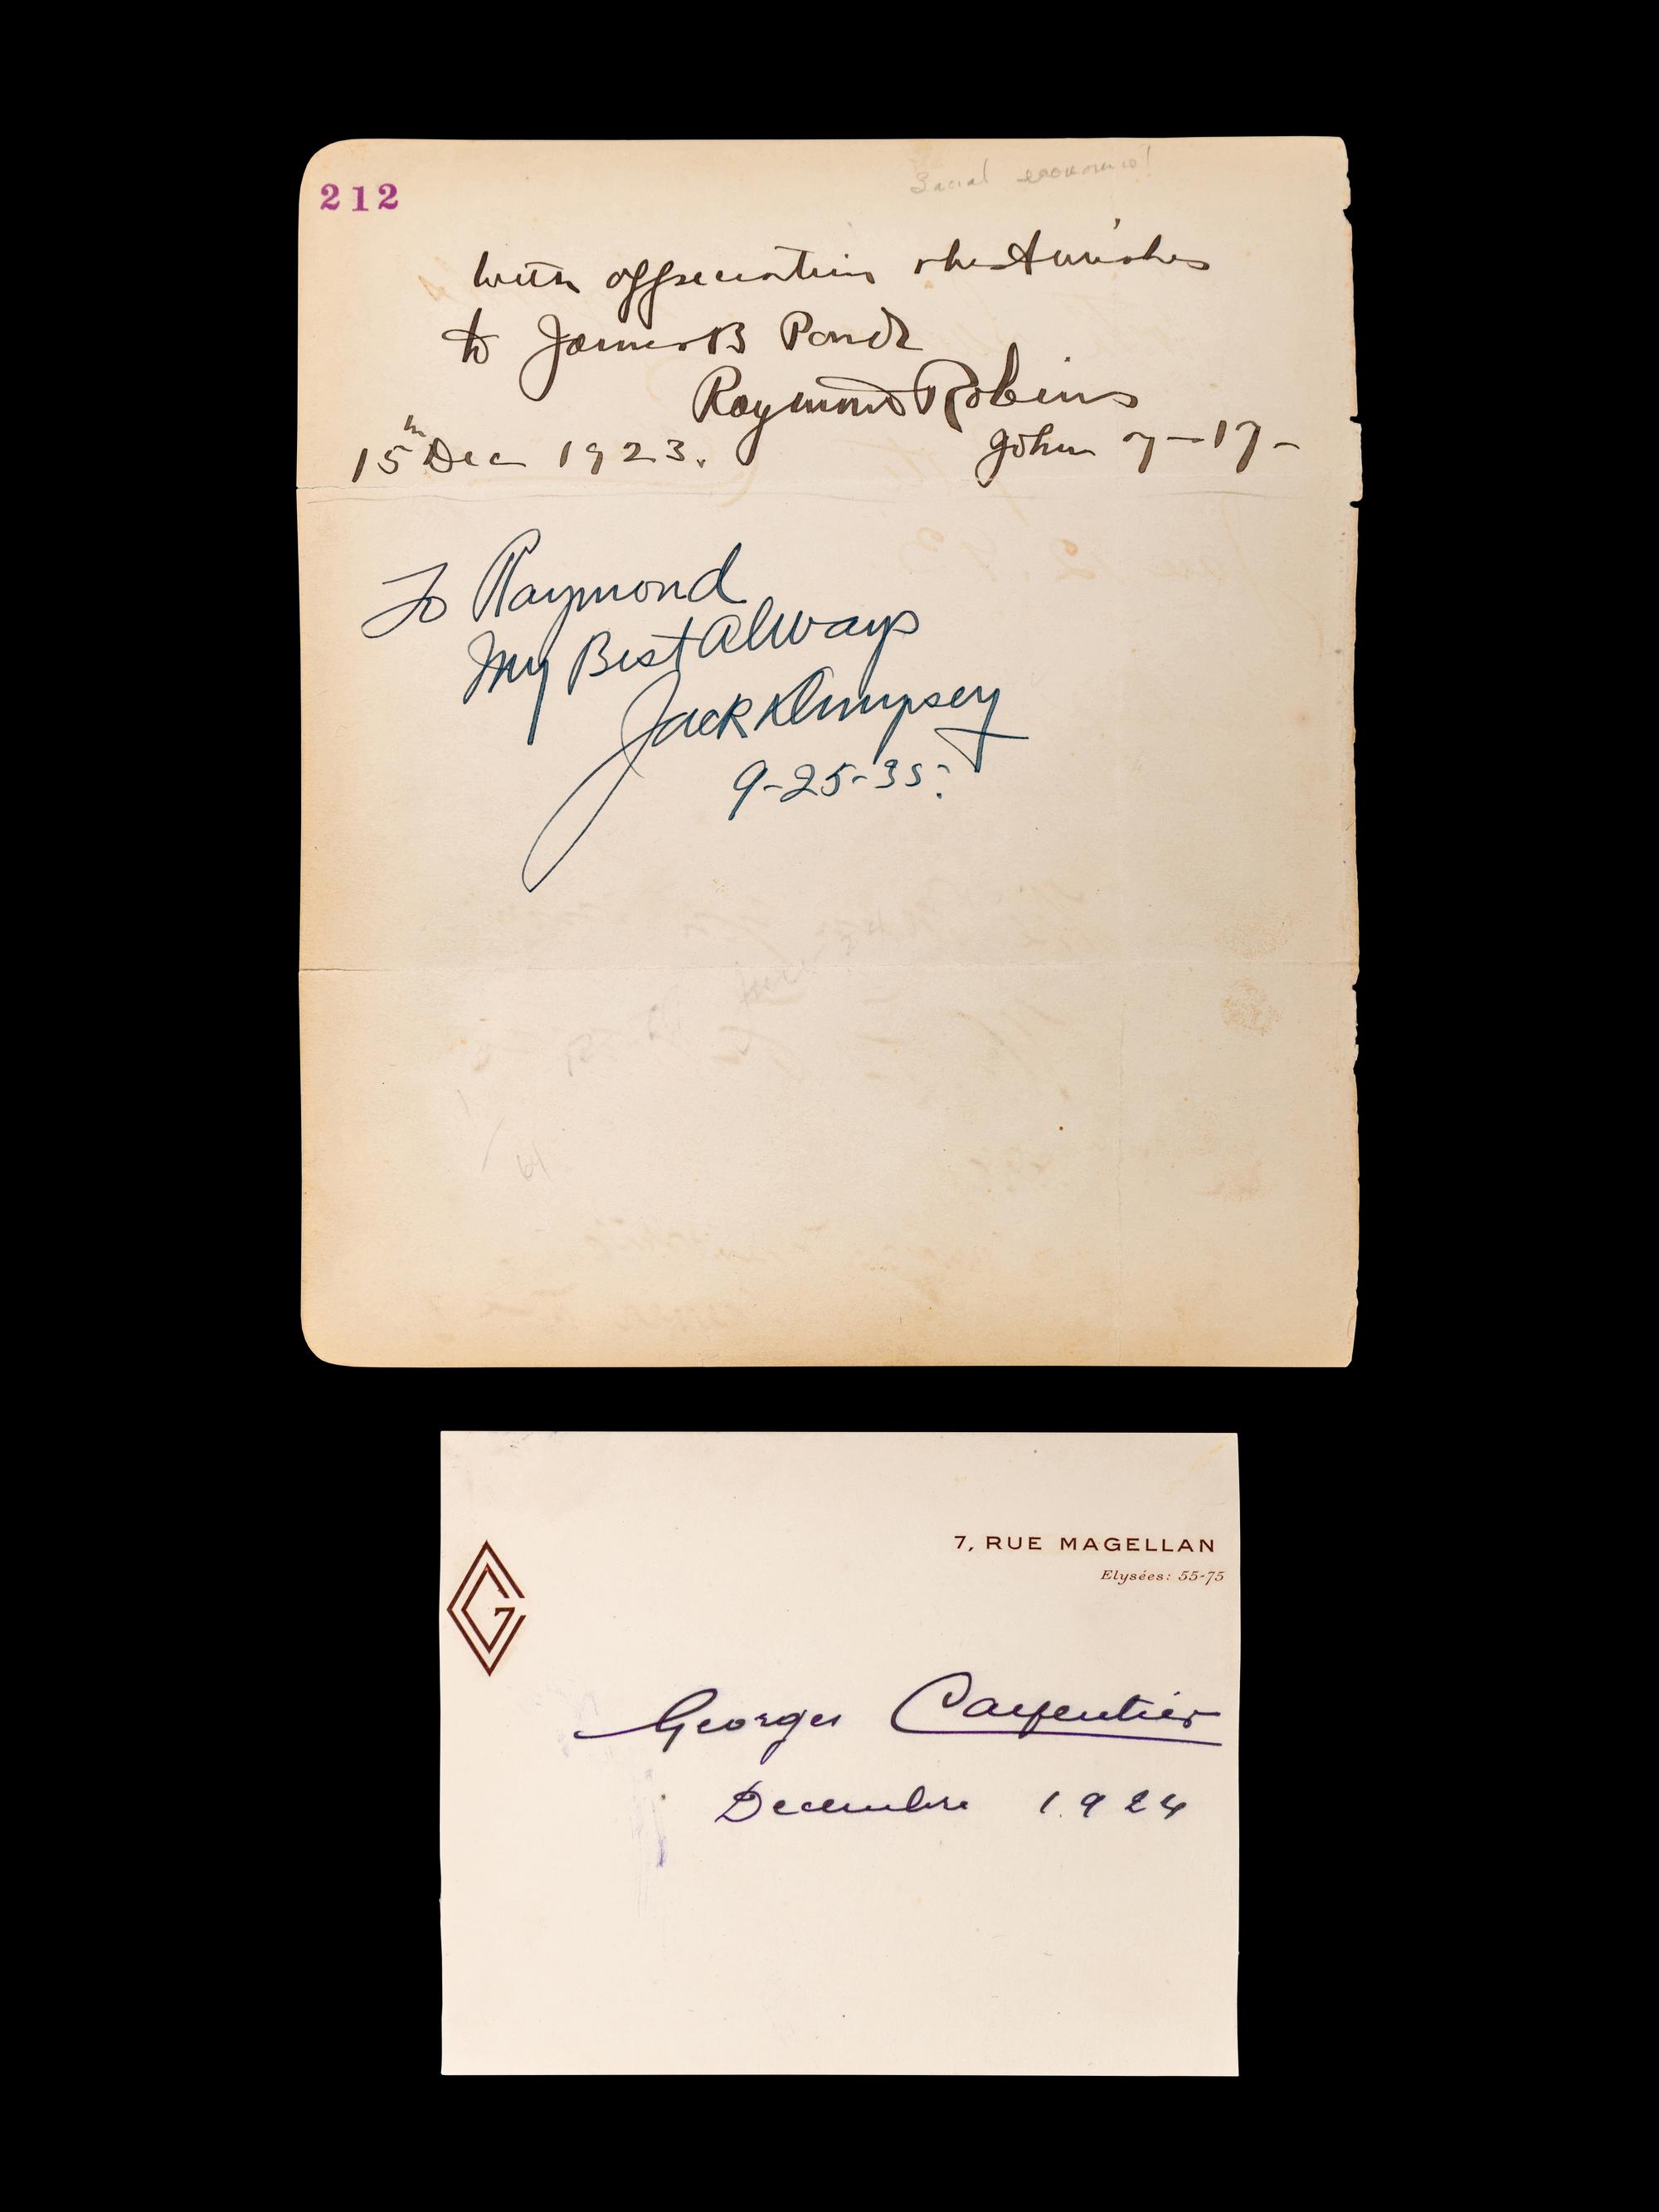 212
Social economics!
With appreciation & best wishes
to James B Pond
Raymond Robins
15th Dec 1923.
John 7-17-
To Raymond
My Best Always
Jack Dempsey
9-25-35.
64
7, RUE MAGELLAN
Elysées: 55-75
G
Georges Carpentier
Decembre 1924